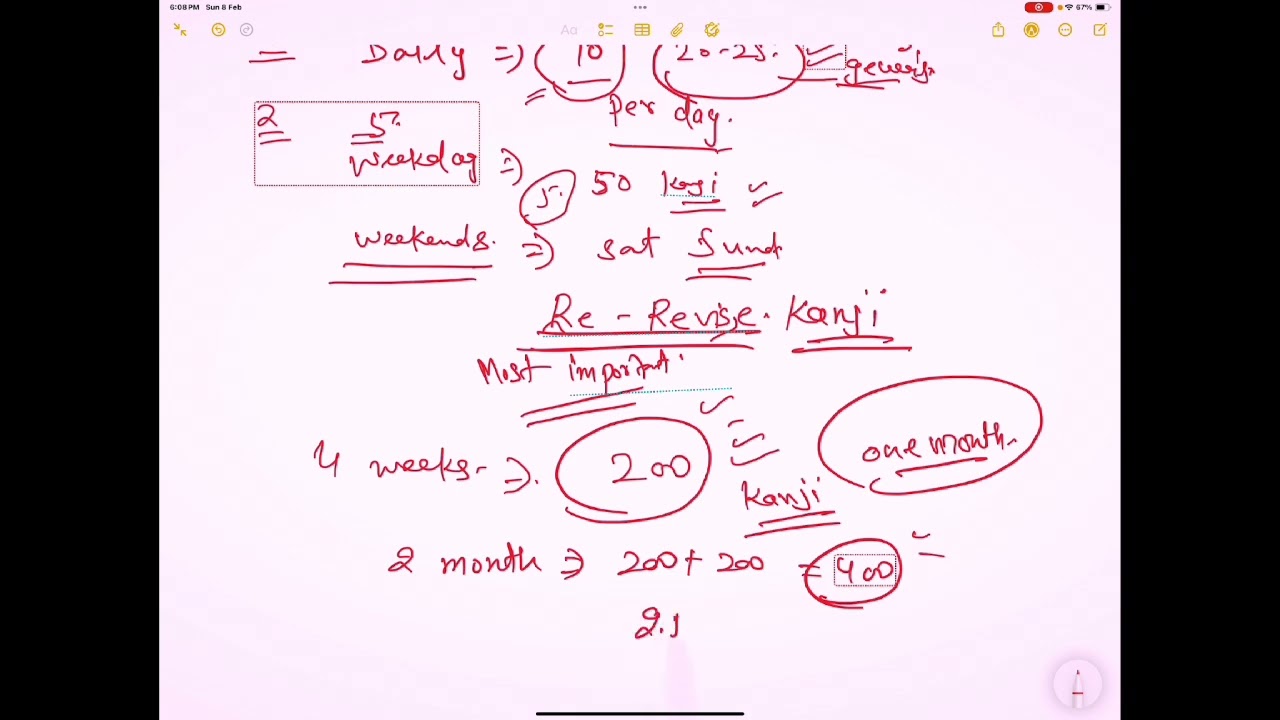 6:08 PM Sun 8 Feb 67%
Aa
= Daily ⇒ 10 20-25.
per day.
2 5
weekday ⇒ 5. 50
weekends. ⇒ sat Sund
Re - Revise. Kanji
Most important
4 weeks- ⇒. 200 one month.
Kanji
2 month ⇒ 200 + 200 = 400
2.